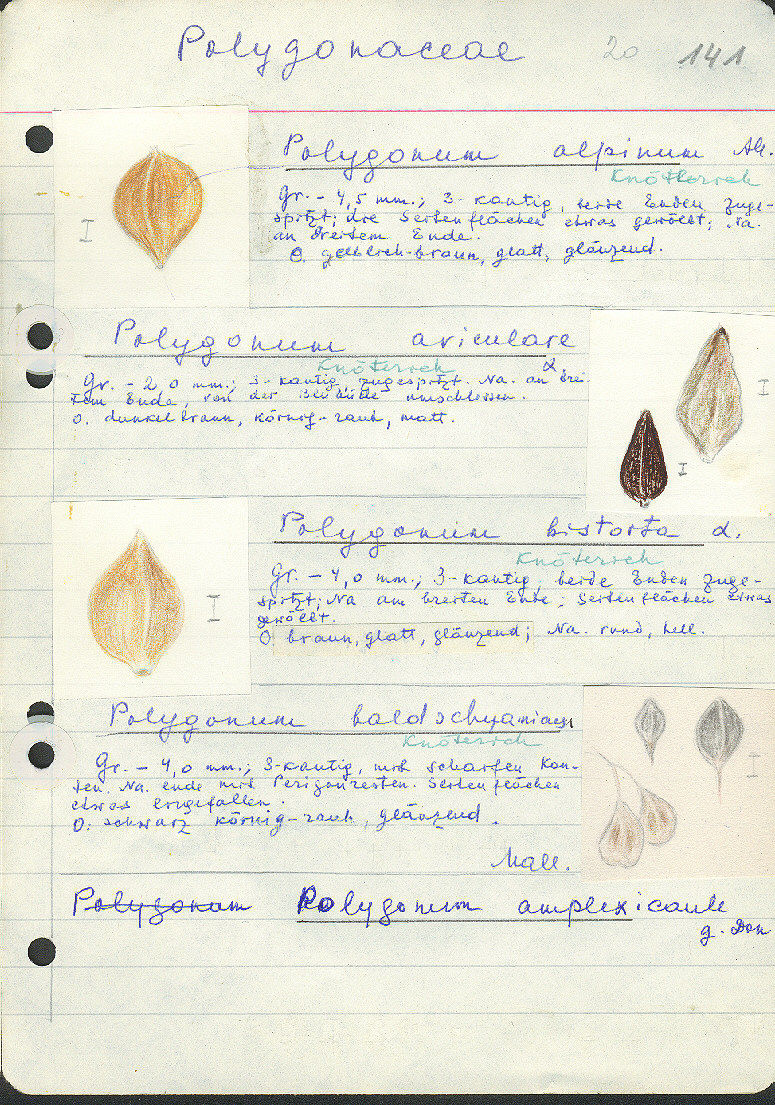 Polygonaceae 20 141
Polygonum alpinum All.
Knöterich
Gr. - 4,5 mm.; 3-kantig, beide Enden zuge-
spitzt; die Seitenflächen etwas gewölbt; Na.
an breitem Ende.
O. gelblich-braun, glatt, glänzend.
Polygonum aviculare
α.
Knöterich
Gr. - 2,0 mm.; 3-kantig, zugespitzt. Na. an brei-
tem Ende, von der Blühülle umschlossen.
O. dunkelbraun, körnig-rauh, matt.
Polygonum bistorta α.
Knöterich
Gr. - 4,0 mm.; 3-kantig, beide Enden zuge-
spitzt; Na am breiten Ende; Seitenflächen etwas
gewölbt.
O braun, glatt, glänzend; Na. rund, hell.
Polygonum baldschuanicum
Knöterich
Gr. - 4,0 mm.; 3-kantig, mit scharfen Kan-
ten. Na. ende mit Perigonresten. Seitenflächen
etwas eingefallen.
O. schwarz körnig-rauh, glänzend.
Polygonum Polygonum amplexicaule
g. Don